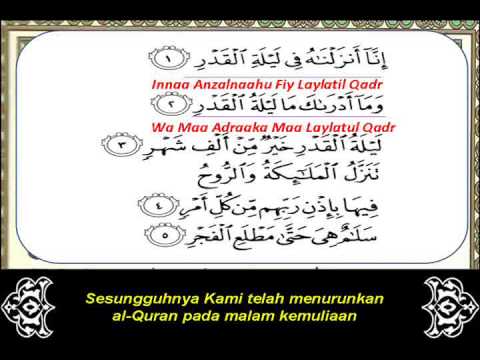 إِنَّآ أَنزَلْنَـٰهُ فِى لَيْلَةِ ٱلْقَدْرِ ١
Innaa Anzalnaahu Fiy Laylatil Qadr
وَمَآ أَدْرَىٰكَ مَا لَيْلَةُ ٱلْقَدْرِ ٢
Wa Maa Adraaka Maa Laylatul Qadr
لَيْلَةُ ٱلْقَدْرِ خَيْرٌ مِّنْ أَلْفِ شَهْرٍ ٣
تَنَزَّلُ ٱلْمَلَـٰٓئِكَةُ وَٱلرُّوحُ
فِيهَا بِإِذْنِ رَبِّهِم مِّن كُلِّ أَمْرٍ ٤
سَلَـٰمٌ هِىَ حَتَّىٰ مَطْلَعِ ٱلْفَجْرِ ٥
Sesungguhnya Kami telah menurunkan
al-Quran pada malam kemuliaan